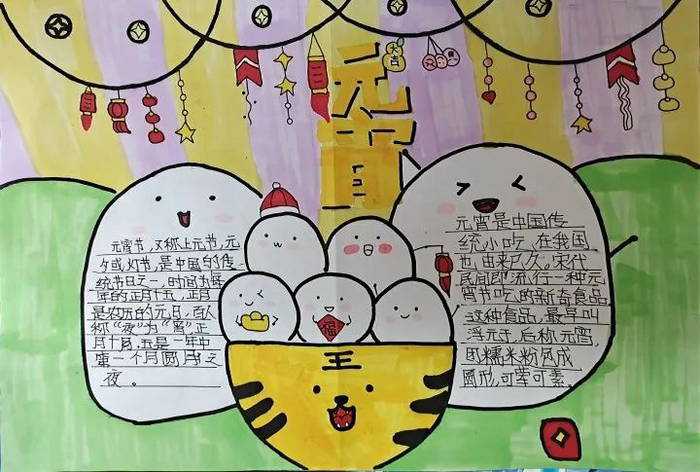 元
宵
大吉
元宵节,又称上元节,元
夕或灯节,是中国的传
统节日之一,时间为每
年的正月十五,正月
是农历的元月,古人
称“夜”为“宵”,正
月十五是一年中
第一个月圆之
夜。
元宵是中国传
统小吃,在我国
也由来已久,宋代
民间即流行一种元
宵节吃的新奇食品
这种食品,最早叫
浮元子,后称元宵,
糯米粉包成
圆形,可荤可素,
福
王